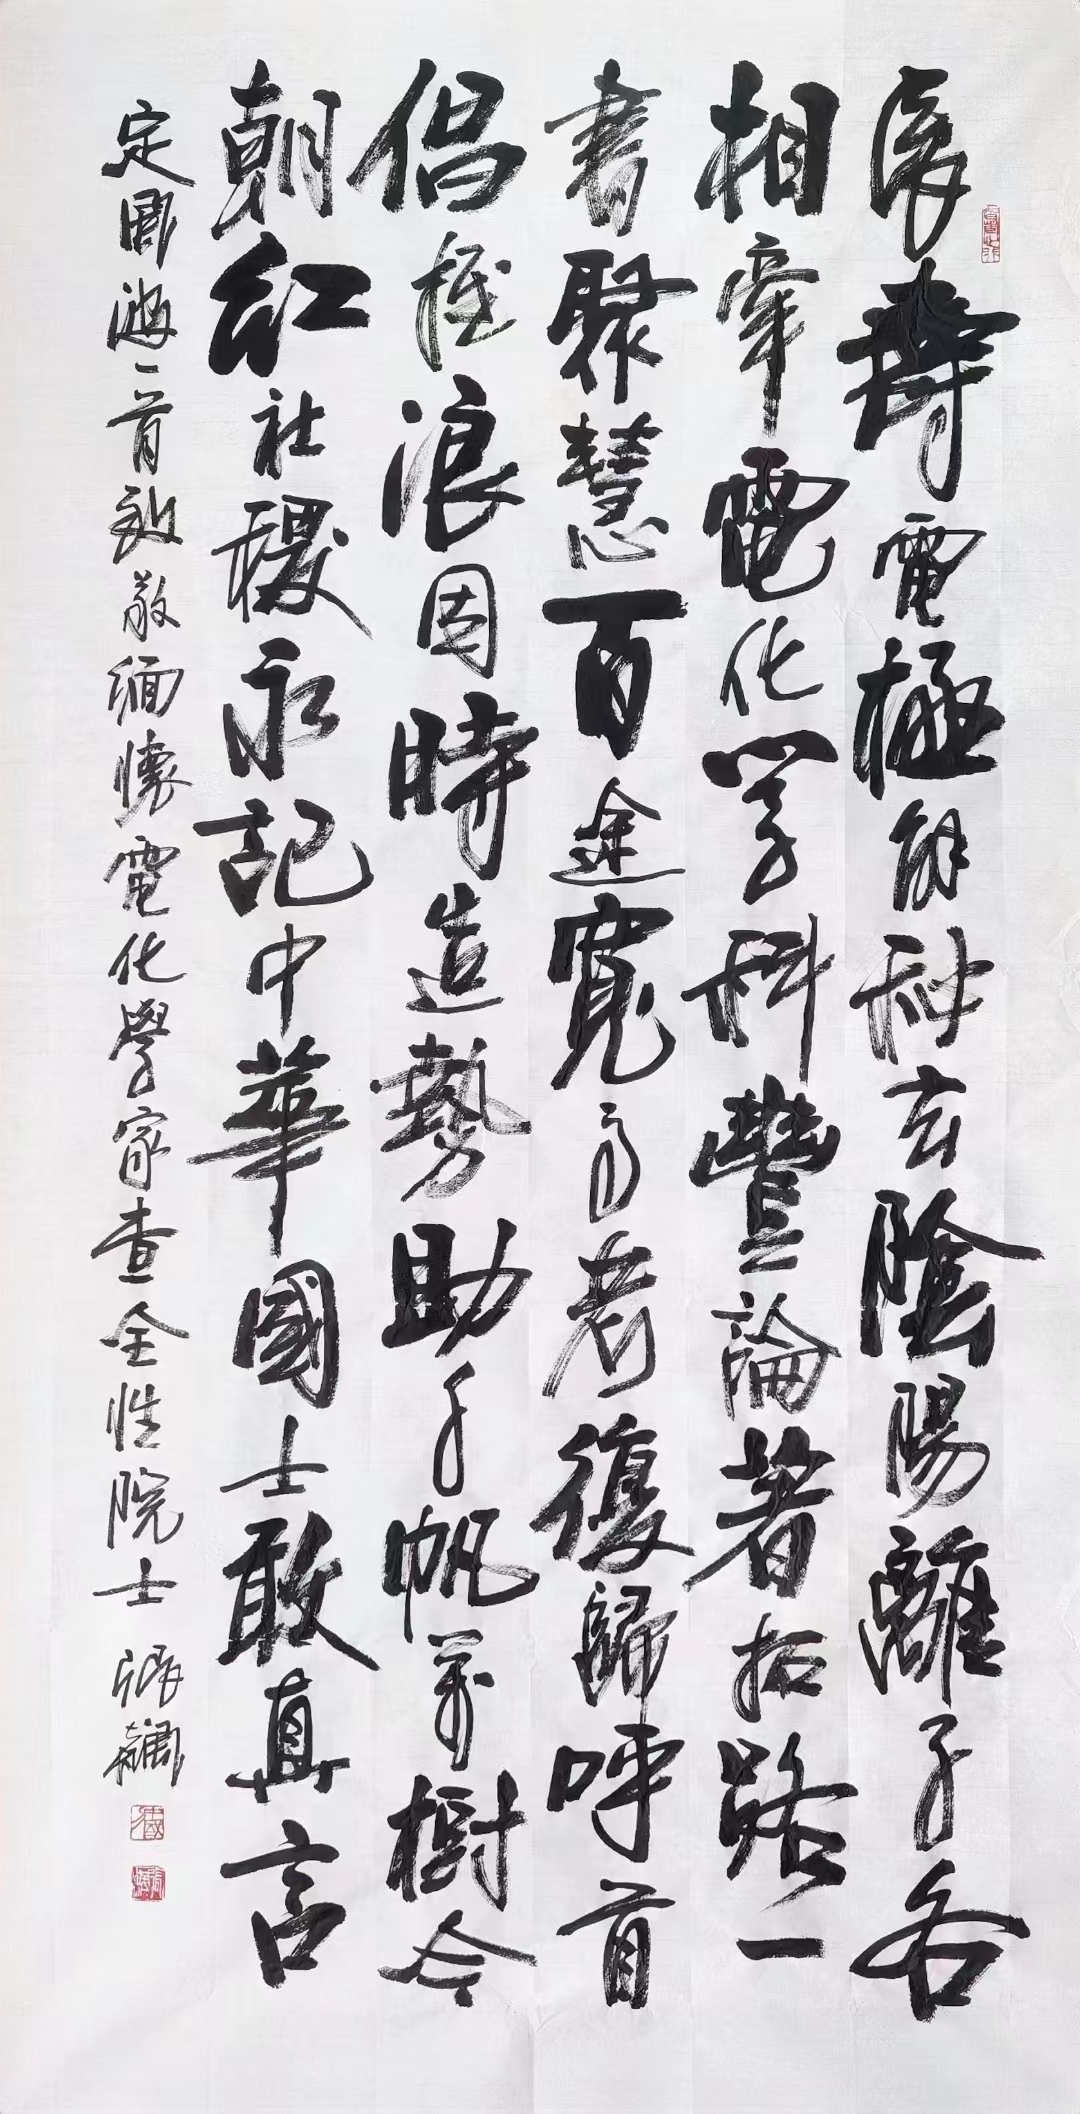 電極解秘玄陰陽離子各
相牽電化學科豐論著拓路一
書聚慧百途寬高考復歸呼首
倡推浪因時造勢助千帆萬樹今
朝紅社稷永記中華國士敢真言
定風波一首致敬緬懷電化學家查全性院士